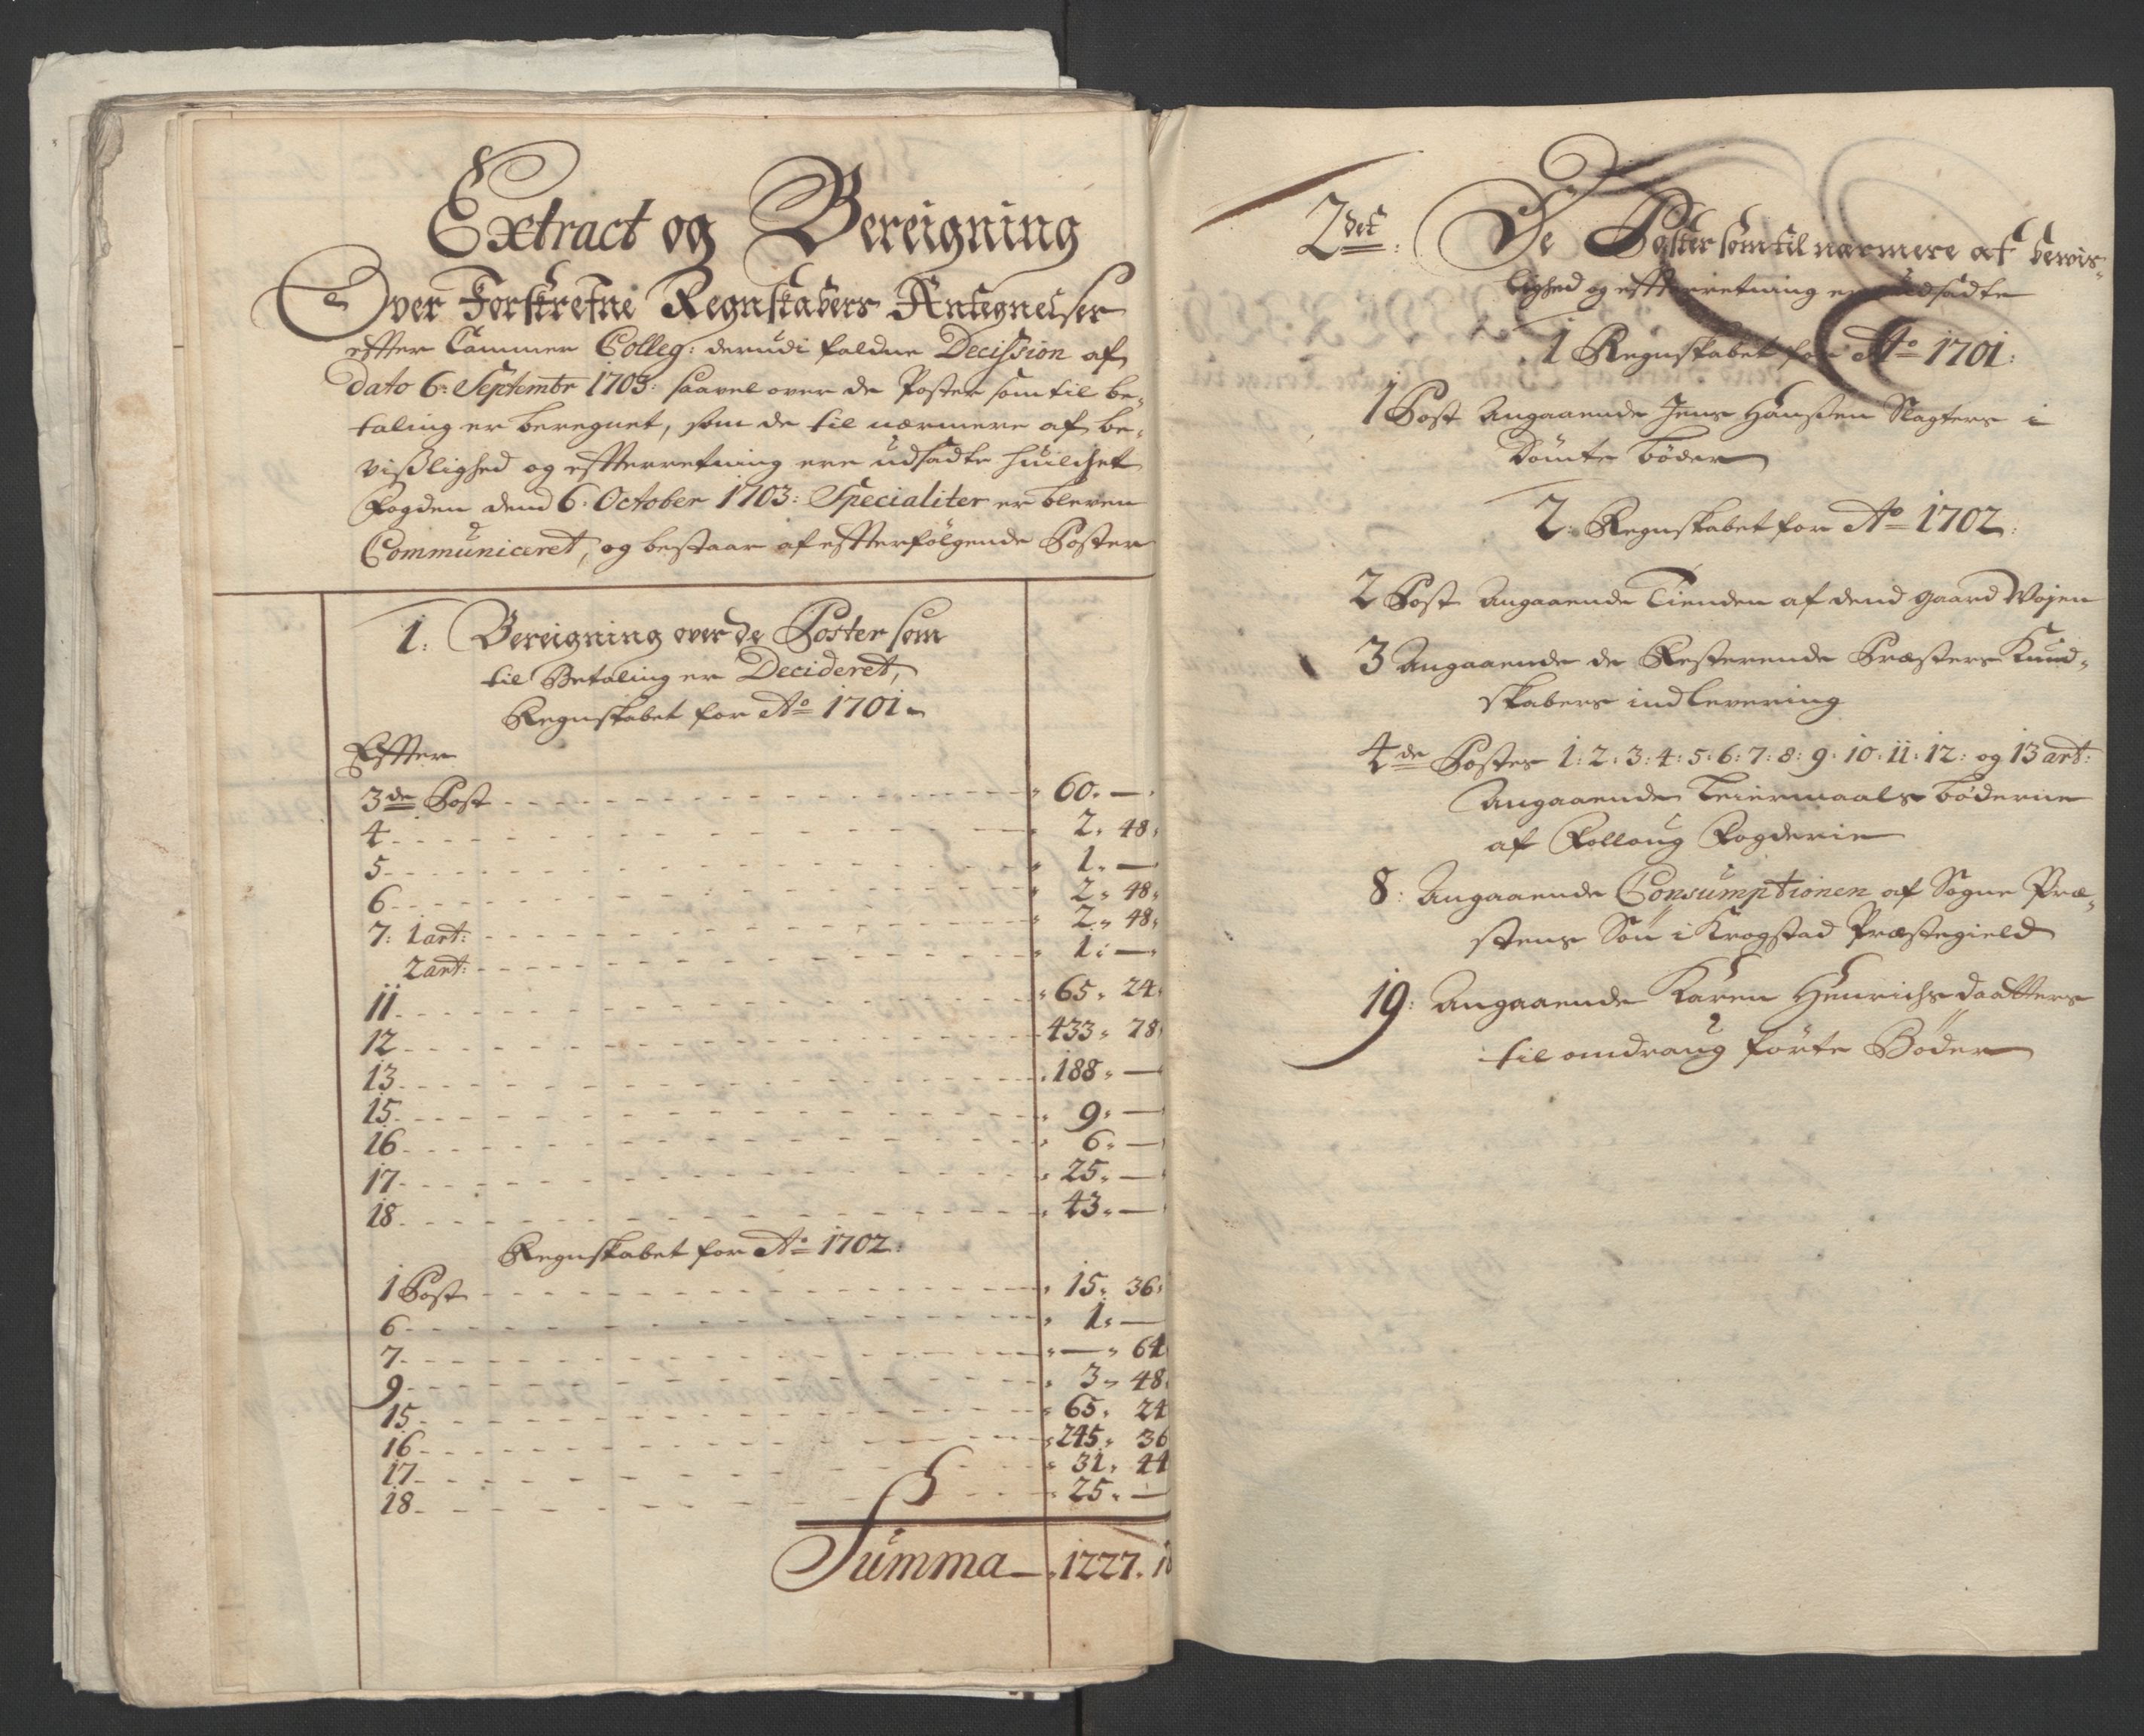 Extract og Bereigning
Over Forskrefne Regnskabers Antegnelser
effter Cammer Colleg: derudi faldne Decission af
Dato 6: Septembr 1703: saavel over de Poster som til be,
taling er beregnet, som de til nærmere af be,
visslighed og effterretning ere udsadte huilchet
Fogden dend 6: October 1703: Specialiter er bleven
Communiceret, og bestaar af effterfölgende Poster
1. Bereigning over de Poster som
til Betaling er Decideret,
Regnskabet for Ao 1701
Effter
3de Post 60. —
4 2. 48
5 1. —
6 2. 48
7: 1 art: 2. 48
2 art: 1. —
11 65. 24
12 433. 78
13 188. —
15 9. —
16 6. —
17 25. —
18 43. —
Regnskabet for Ao 1702:
1 Post 15. 36
6 1. —
7 — 64
9 3. 48
15 65. 24
16 245. 36
17 31. 44
18 25. —
Summa 1227.
2det: De Poster som til nærmere af bevis,
lighed og effterretning er udsadte
1 Regnskabet for Ao 1701:
1 Post Angaaende Jens Hanssen Slagters i
Dömteböder
2: Regnskabet for Ao 1702:
2 Post Angaaende Tienden af dend gaard Wojen
3 Angaaende de Resterende Præsters Kund,
skabers indlevering
4de Postes 1: 2: 3: 4: 5: 6: 7: 8: 9: 10: 11: 12: og 13 art:
Angaaende Leiermaals böderne
af Follaug Fogderie
8: Angaaende Consumptionen af Sogne Præ,
stens Sön i Krogstad Præstegield
19: Angaaende Karen Henrichsdaatters
til omdraug förte Böder